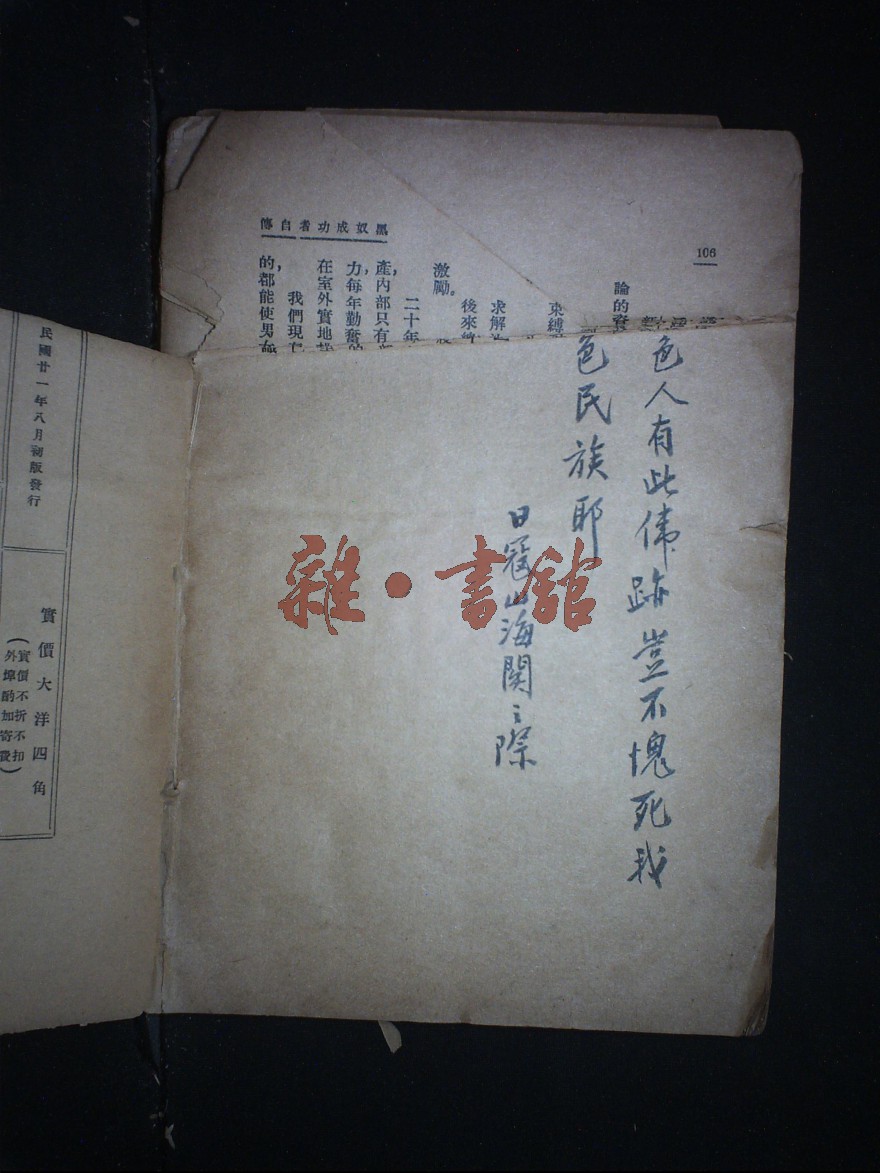 黑奴成功者自傳
106
論的
束縛
求解
後來
激勵。
二十年
產,內部只有
力,每年勤奮的
在室外實地
我們現在
的,都能使男
色人有此偉跡豈不愧死我
色民族耶
日寇山海関々際
雜·書館
民國廿一年八月初版發行
實價大洋四角
(實價不折不扣
外埠酌加寄費)